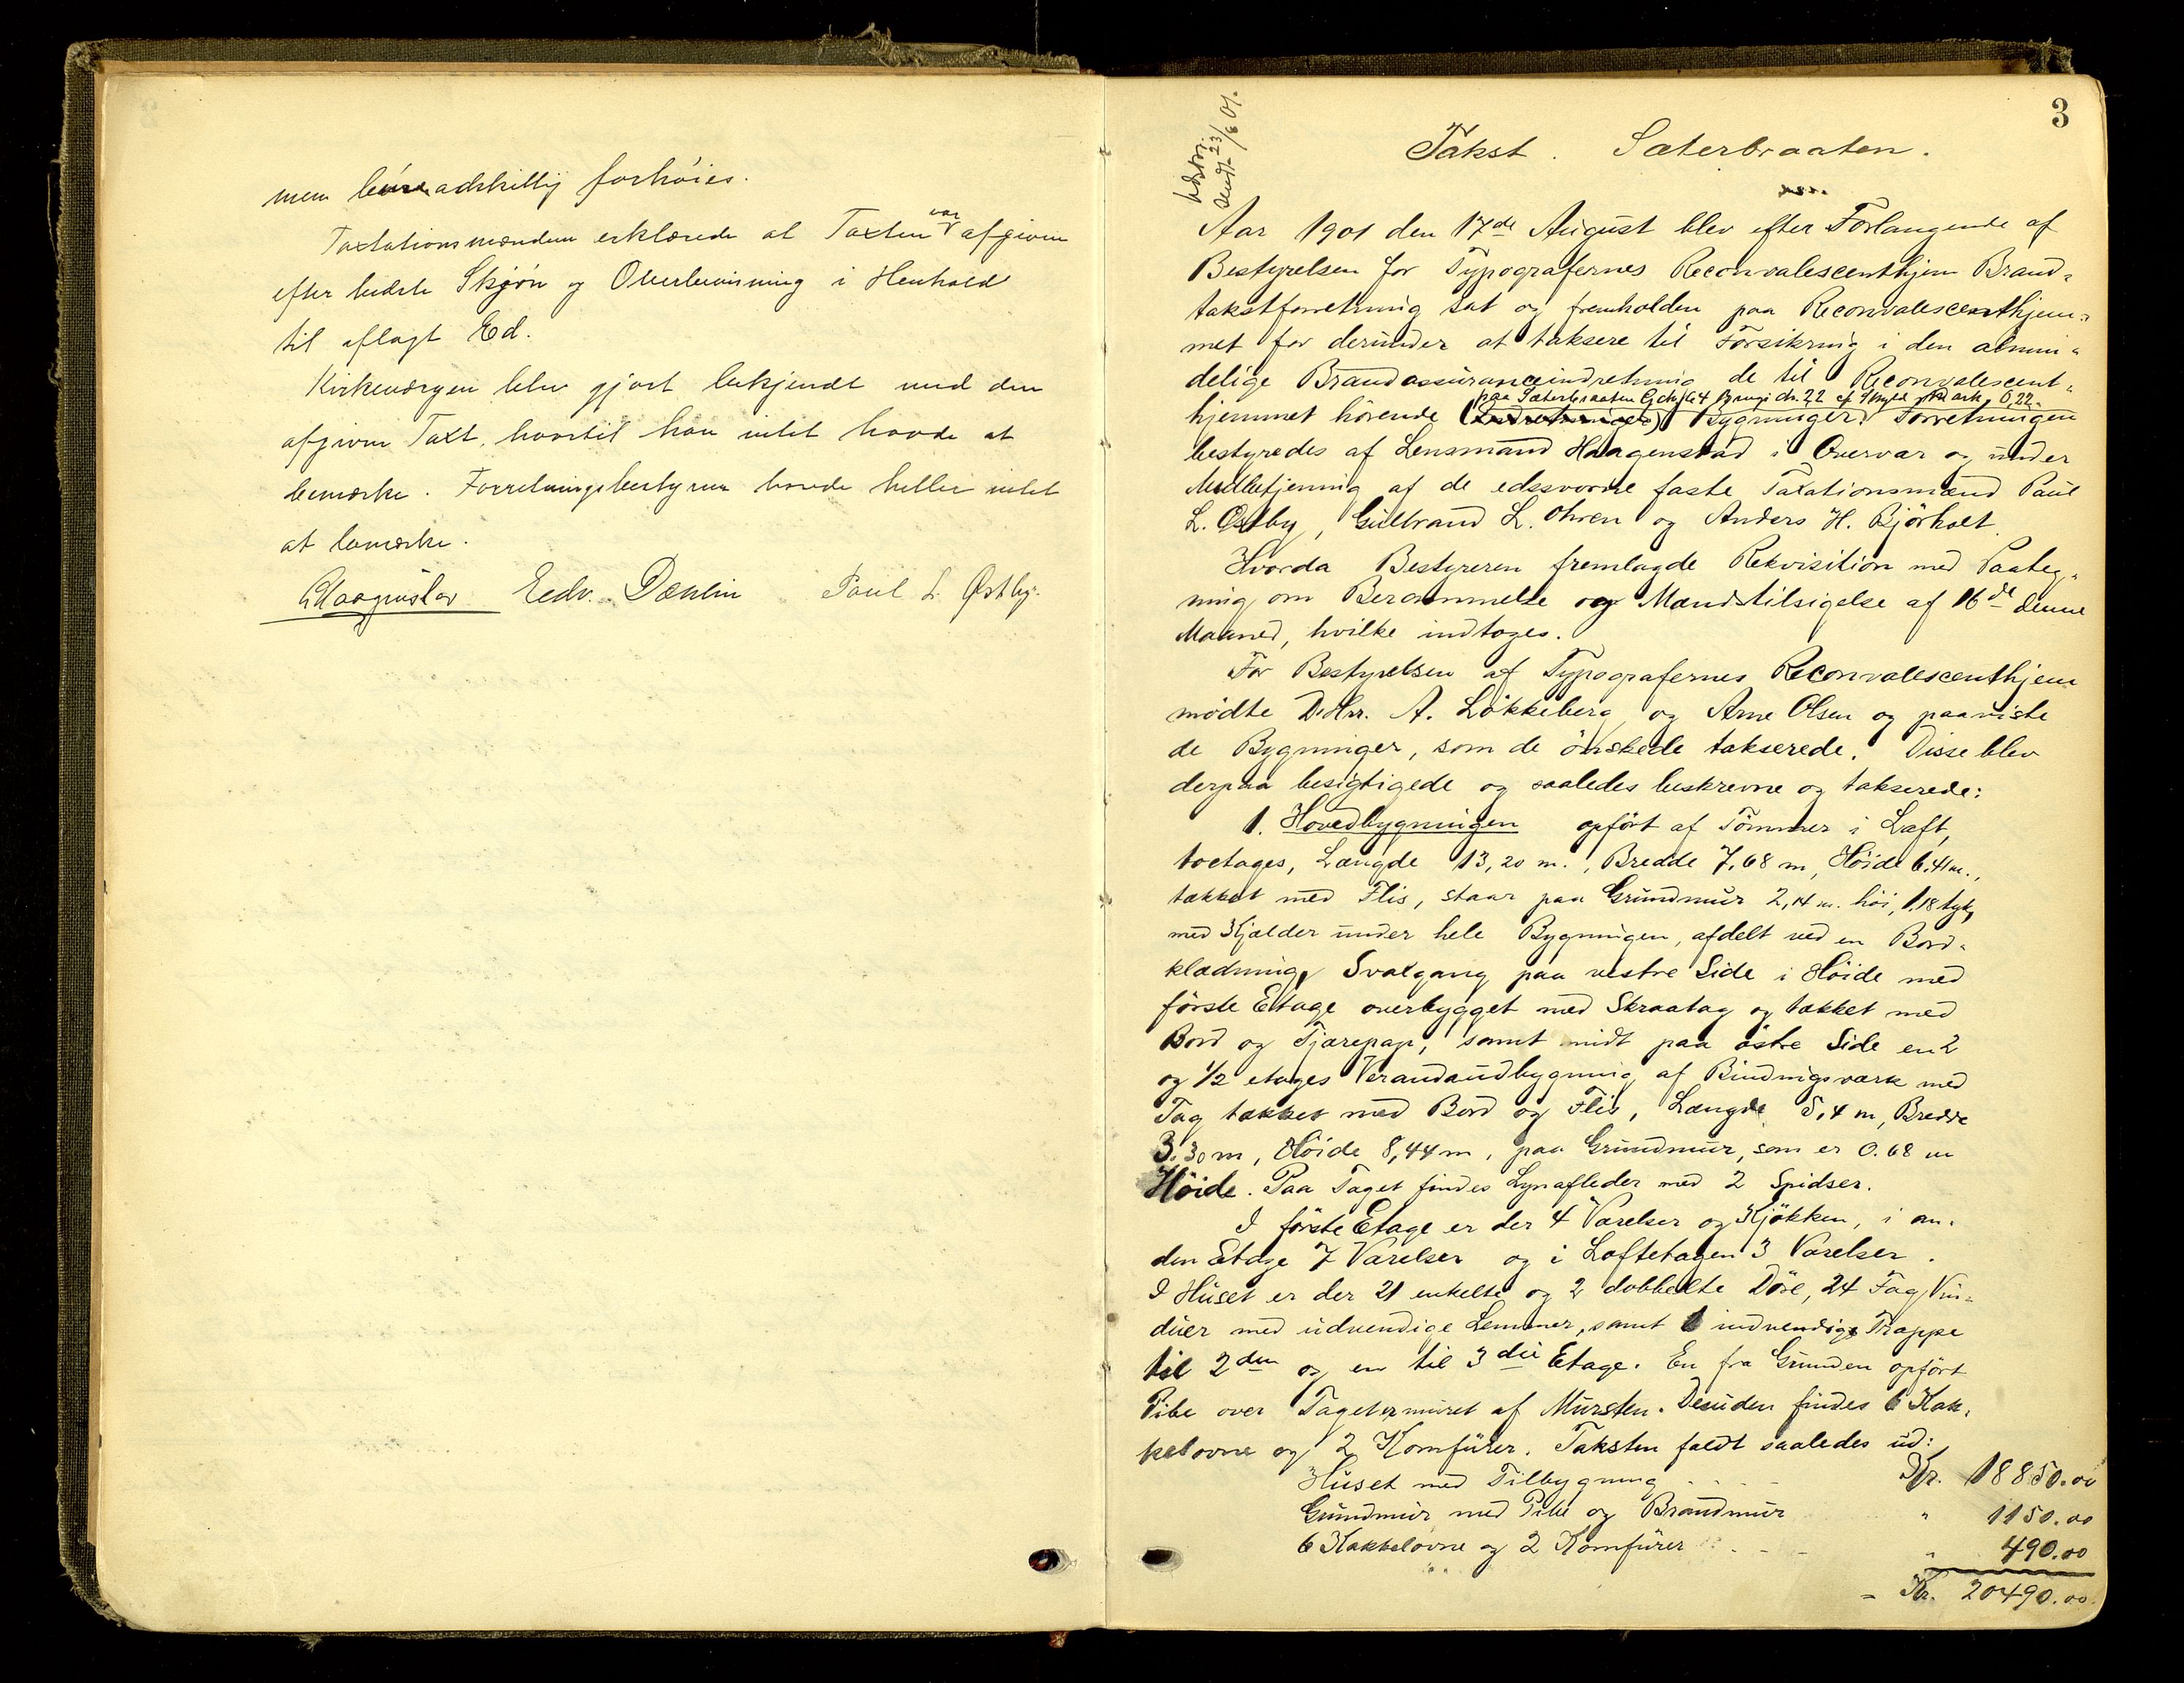 men adskillig forhøies.
Taxtationsmændene erklærede at Taxten var afgiven
efter bedste Skjøn og Overbevisning i Henhold
til aflagt Ed.
Kirkeværgen blev gjort bekjendt med den
afgivne Taxt, hvortil han intet havde at
bemærke. Forretningsbestyreren havde heller intet
at bemærke.
Edv. Dæhlin Paul L. Østby.
3
Udskr.
sendt 23/6 01.
Takst. Sæterbraaten.
Aar 1901 den 17de August blev efter Forlangende af
Bestyrelsen for Typografernes Reconvalescenthjem Brand-
takstforretning sat og fremholden paa Reconvalescenthjem-
met for derunder at taksere til Forsikring i den almin-
delige Brandassuranceindretning de til Reconvalescent-
paa Sæterbraaten G.No. 64 Brugs No. 22 af Skyld Mark 0,22.
hjemmet hörende (Indretninger) Bygninger. Forretningen
bestyredes af Lensmand Haagenstad i Overvær og under
Medbetjening af de edssvorne faste Taxationsmænd Paul
L. Østby, Gulbrand L. Ohren og Anders H. Björholt.
Hvorda Bestyreren fremlagde Rekvisition med Paateg-
ning om Berammelse og Mandstilsigelse af 16de denne
Maaned, hvilke indtoges.
For Bestyrelsen af Typografernes Reconvalescenthjem
mödte D'Hrr. A. Lökkeberg og Arne Olsen og paaviste
de Bygninger, som de önskede takserede. Disse blev
derpaa besigtigede og saaledes beskrevne og takserede:
1. Hovedbygningen opfört af Tömmer i Laft,
toetages, Længde 13,20 m., Bredde 7,68 m, Höide 6,41 m.,
tækket med Flis, staar paa Grundmur 2,14 m. höi, 1,18 tyk,
med Kjælder under hele Bygningen, afdelt ved en Bord-
klædning, Svalgang paa vestre Side i Höide med
förste Etage overbygget med Skraatag og tækket med
Bord og Tjærepap, samt midt paa östre Side en 2
og 1/2 etages Verandaudbygning af Bindingsværk med
Tag tækket med Bord og Flis, Længde 5,4 m, Bredde
3.30 m, Höide 8,44 m, paa Grundmur, som er 0.68 m
Höide. Paa Taget findes Lynafleder med 2 Spidser.
I förste Etage er der 4 Værelser og Kjökken, i an-
den Etage 7 Værelser og i Loftetagen 3 Værelser.
I Huset er der 21 enkelte og 2 dobbelte Döre, 24 Fag Vin-
duer med udvendige Lemmer, samt 1 indvendige Trappe
til 2den og en til 3die Etage. En fra Grunden opfört
Pibe over Taget er muret af Mursten. Desuden findes 6 Kak-
kelovne og 2 Komfürer. Taksten faldt saaledes ud:
Huset med Tilbygning - - - Kr. 18850.00
Grundmur med Pibe og Brandmur " 1150.00
6 Kakkelovne og 2 Komfürer - - - " 490.00
= Kr. 20490.00